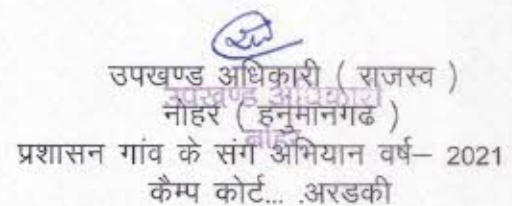 उपखण्ड अधिकारी ( राजस्व )
उपखण्ड अधिकारी
नोहर ( हनुमानगढ )
नोहर
प्रशासन गांव के संग अभियान वर्ष– 2021
कैम्प कोर्ट... .अरडकी